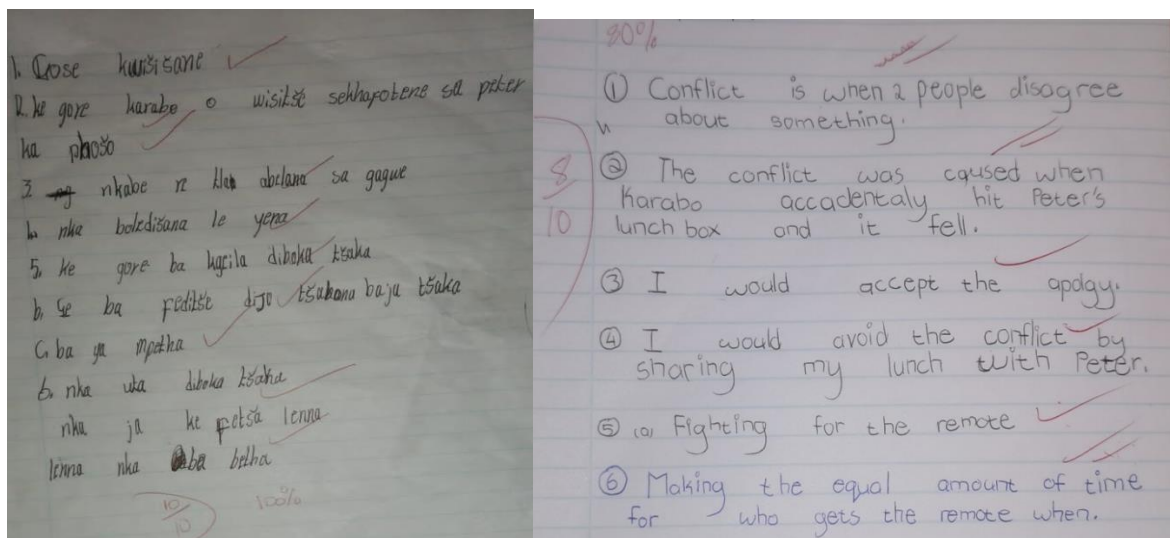 1. Gose kwišišane
2. ke gore karabo o wisitše sekhafotene sa peter
ka phošo
3. nkabe re abelana sa gagwe
4. nka boledišana le yena
5. ke gore ba kgcila diboka tšaka
b. ge ba feditše dijo tšabona baja tšaka
C. ba ya mpetha
6. nka uta diboka tšaka
nka ja ke fetša lenna
lenna nka ba betha
10
10
100%
80%
① Conflict is when 2 people disagree
about something.
② The conflict was caused when
Karabo accadentaly hit Peter's
lunch box and it fell.
8
10
③ I would accept the apology.
④ I would avoid the conflict by
sharing my lunch with Peter.
⑤ (a) Fighting for the remote
⑥ Making the equal amount of time
for who gets the remote when.